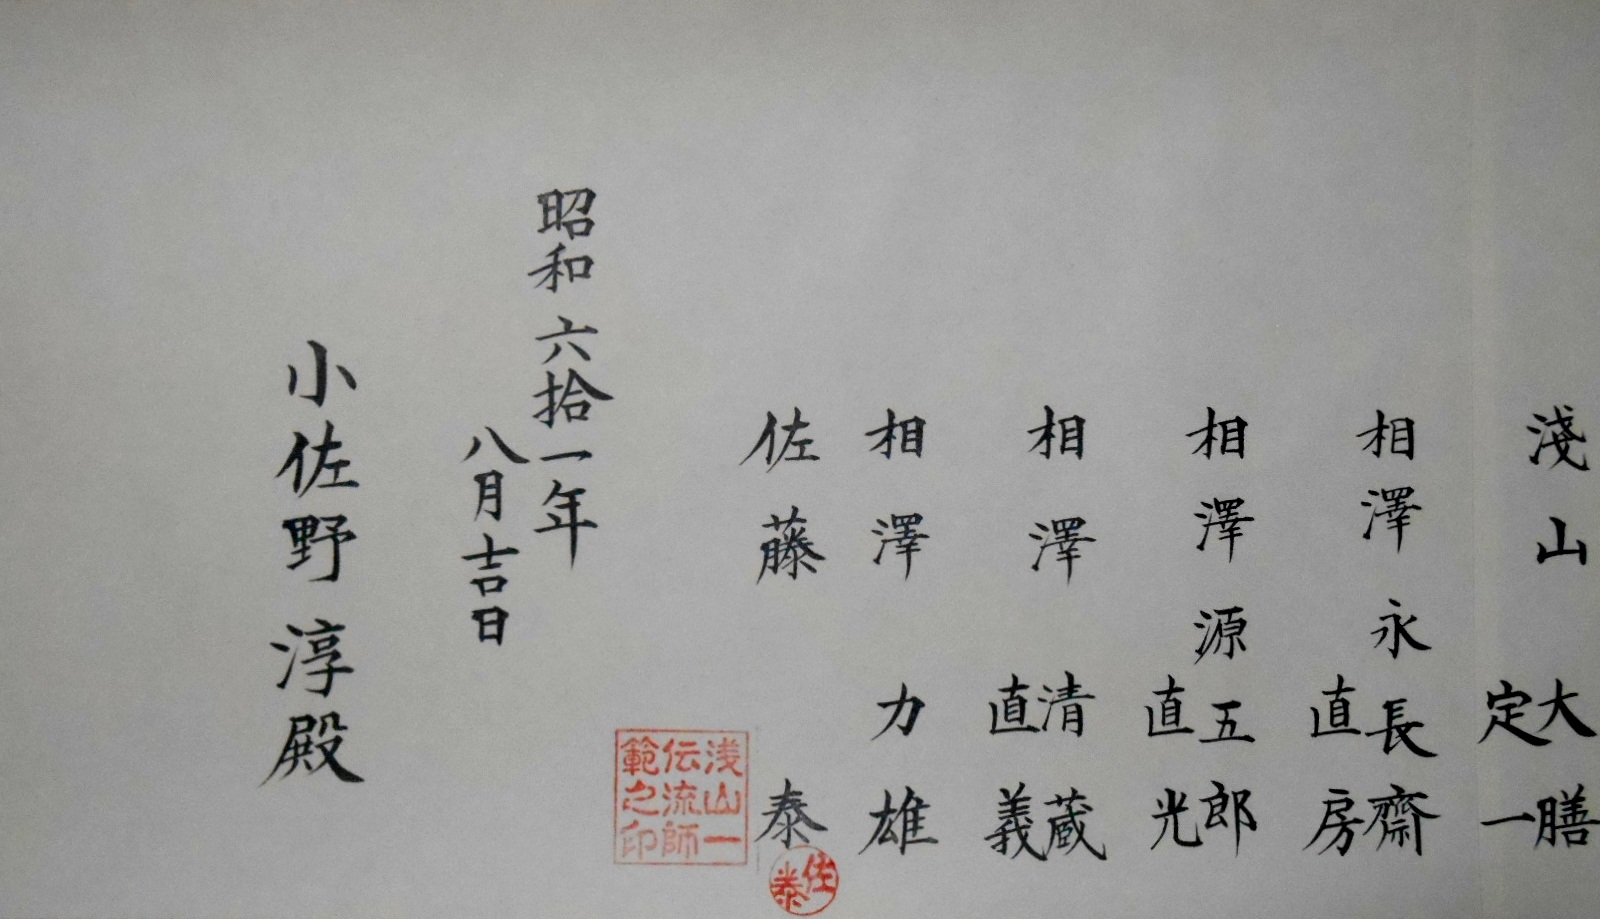 淺山大膳
定一
相澤永長齋
直房
相澤源五郎
直光
相澤清蔵
直義
相澤力雄
佐藤泰
佐泰
浅山一
伝流師
範之印
昭和六拾一年
八月吉日
小佐野淳殿